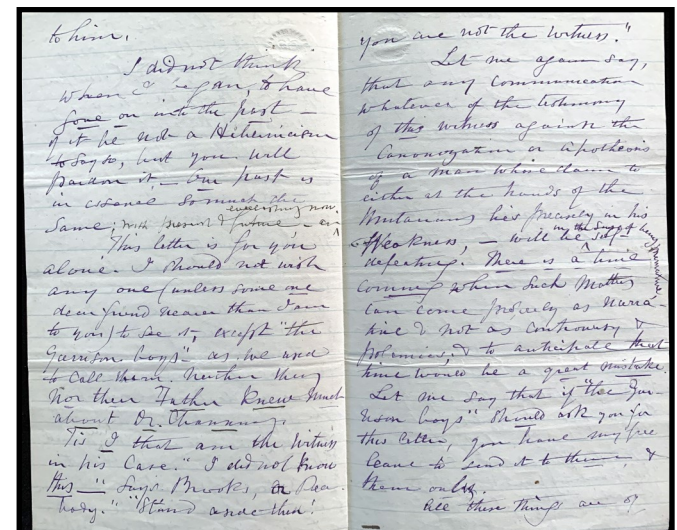 to him.
I did not think
when I began, to have
gone on into the past —
if it be not a Hibernicism
to say so, but you will
pardon it, — Our past is
in essence so much the
everlasting now.
Same, with present & future — an
This letter is for you
alone. I should not wish
any one (unless some one
dear friend nearer than I am
to you) to see it, except "the
Garrison boys" as we used
to call them. Neither they
nor their Father knew much
about Dr. Channing.
'Tis I that am the witness
in his case." I did not know
this —" says Brooks, or Pea-
body." "Stand aside then!
you are not the witness."
Let me again say,
that any communication
whatever of the testimony
of this witness against the
Canonization or apotheosis
of a man whose claim to
either at the hands of the
Unitarians lies precisely in his
weakness, — will be self-
in the cause of
defeating. There is a time
coming when such matters
can come properly as narra-
tive & not as controversy &
polemics, & to anticipate that
time would be a great mistake.
Let me say that if "the Gar-
rison boys" should ask you for
this letter, you have my free
leave to send it to them, &
them only.
All these things are of